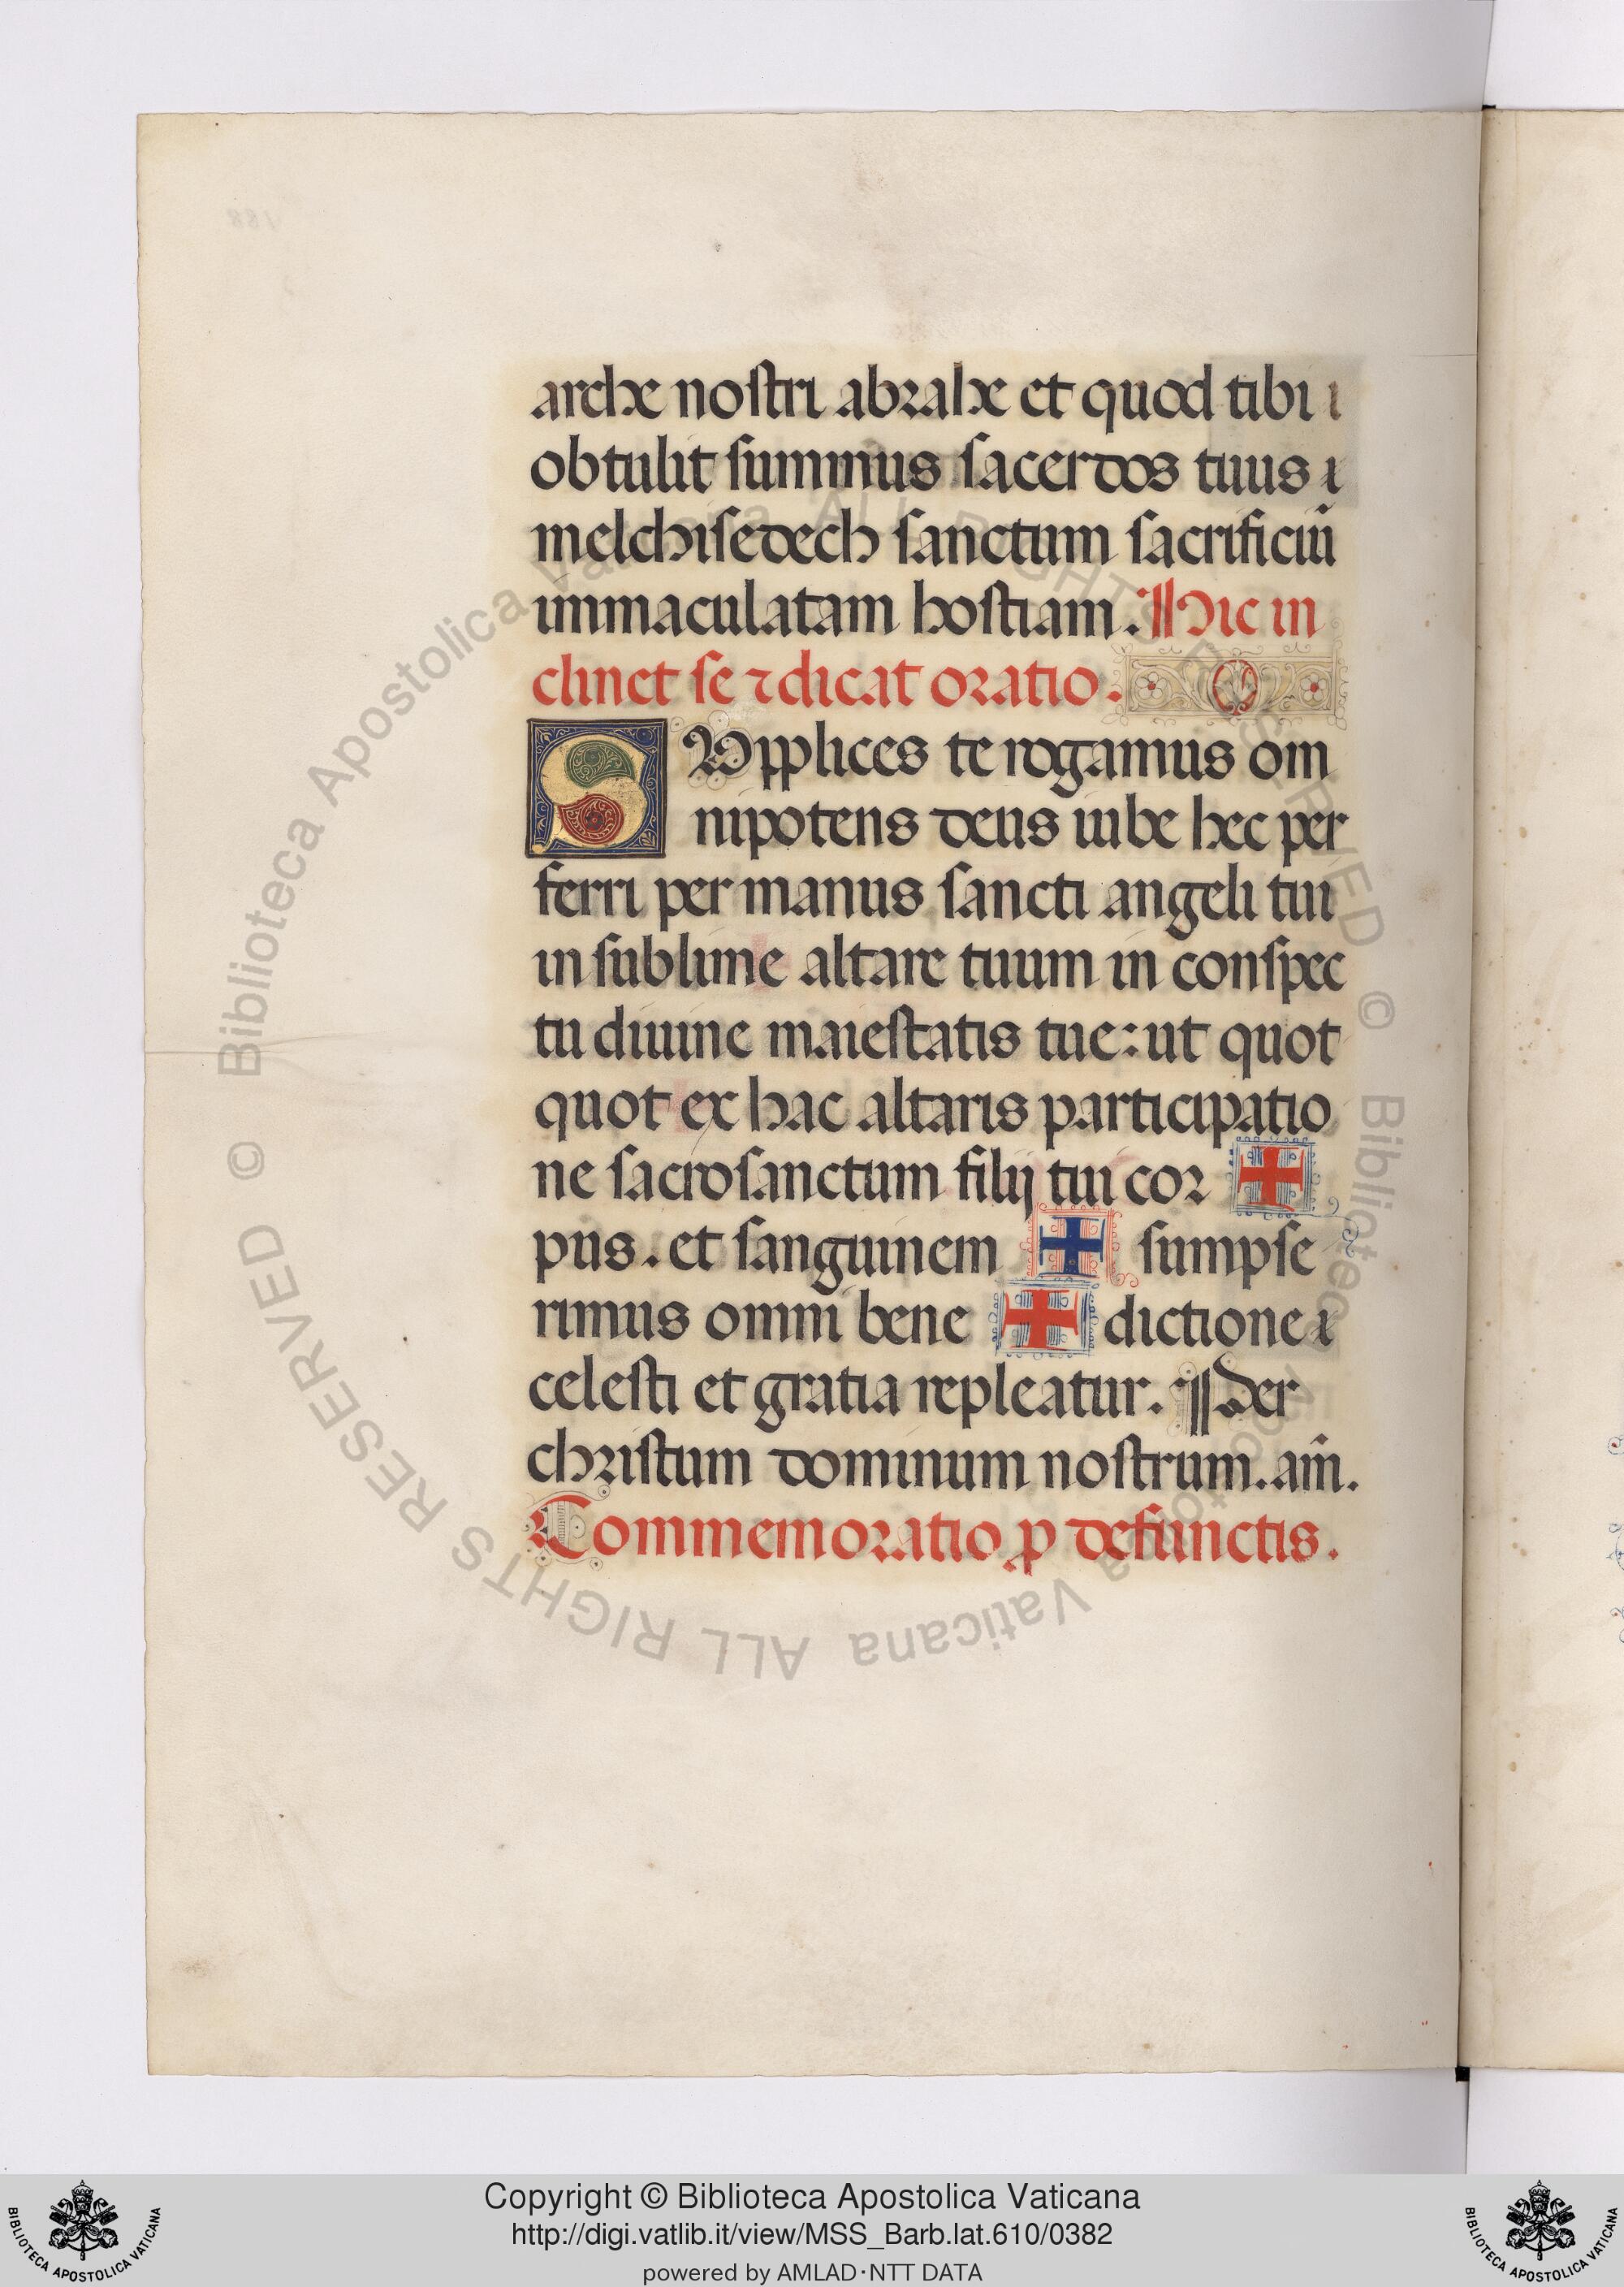 arche nostri abrahe et quod tibi i
obtulit summus sacerdos tuus i
melchisedech sanctum sacrificiū
immaculatam hostiam. Hic in
clinet se ⁊ dicat oratio.
SVpplices te rogamus om
nipotens deus iube hec per
ferri per manus sancti angeli tui
in sublime altare tuum in conspec
tu diuine maiestatis tue: ut quot
quot ex hac altaris participatio
ne sacrosanctum filij tui cor ✠
pus. et sanguinem ✠ sumpse
rimus omni bene ✠ dictione i
celesti et gratia repleatur. Per
christum dominum nostrum. am̄.
Commemoratio ꝓ defunctis.
188
© Biblioteca Apostolica Vaticana ALL RIGHTS RESERVED © Biblioteca Apostolica Vaticana ALL RIGHTS RESERVED
Copyright © Biblioteca Apostolica Vaticana
http://digi.vatlib.it/view/MSS_Barb.lat.610/0382
powered by AMLAD·NTT DATA
BIBLIOTECA APOSTOLICA VATICANA
BIBLIOTECA APOSTOLICA VATICANA